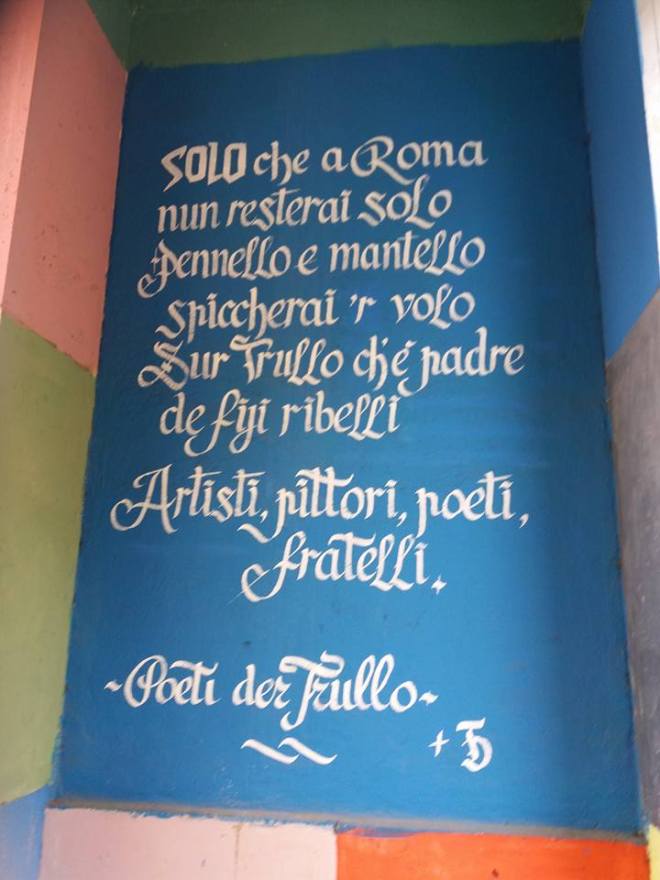 SOLO che a Roma
nun resterai solo
Pennello e mantello
spiccherai 'r volo
Sur Trullo ch'è padre
de fiji ribelli
Artisti, pittori, poeti,
fratelli.
~Poeti der Trullo~
+ TD